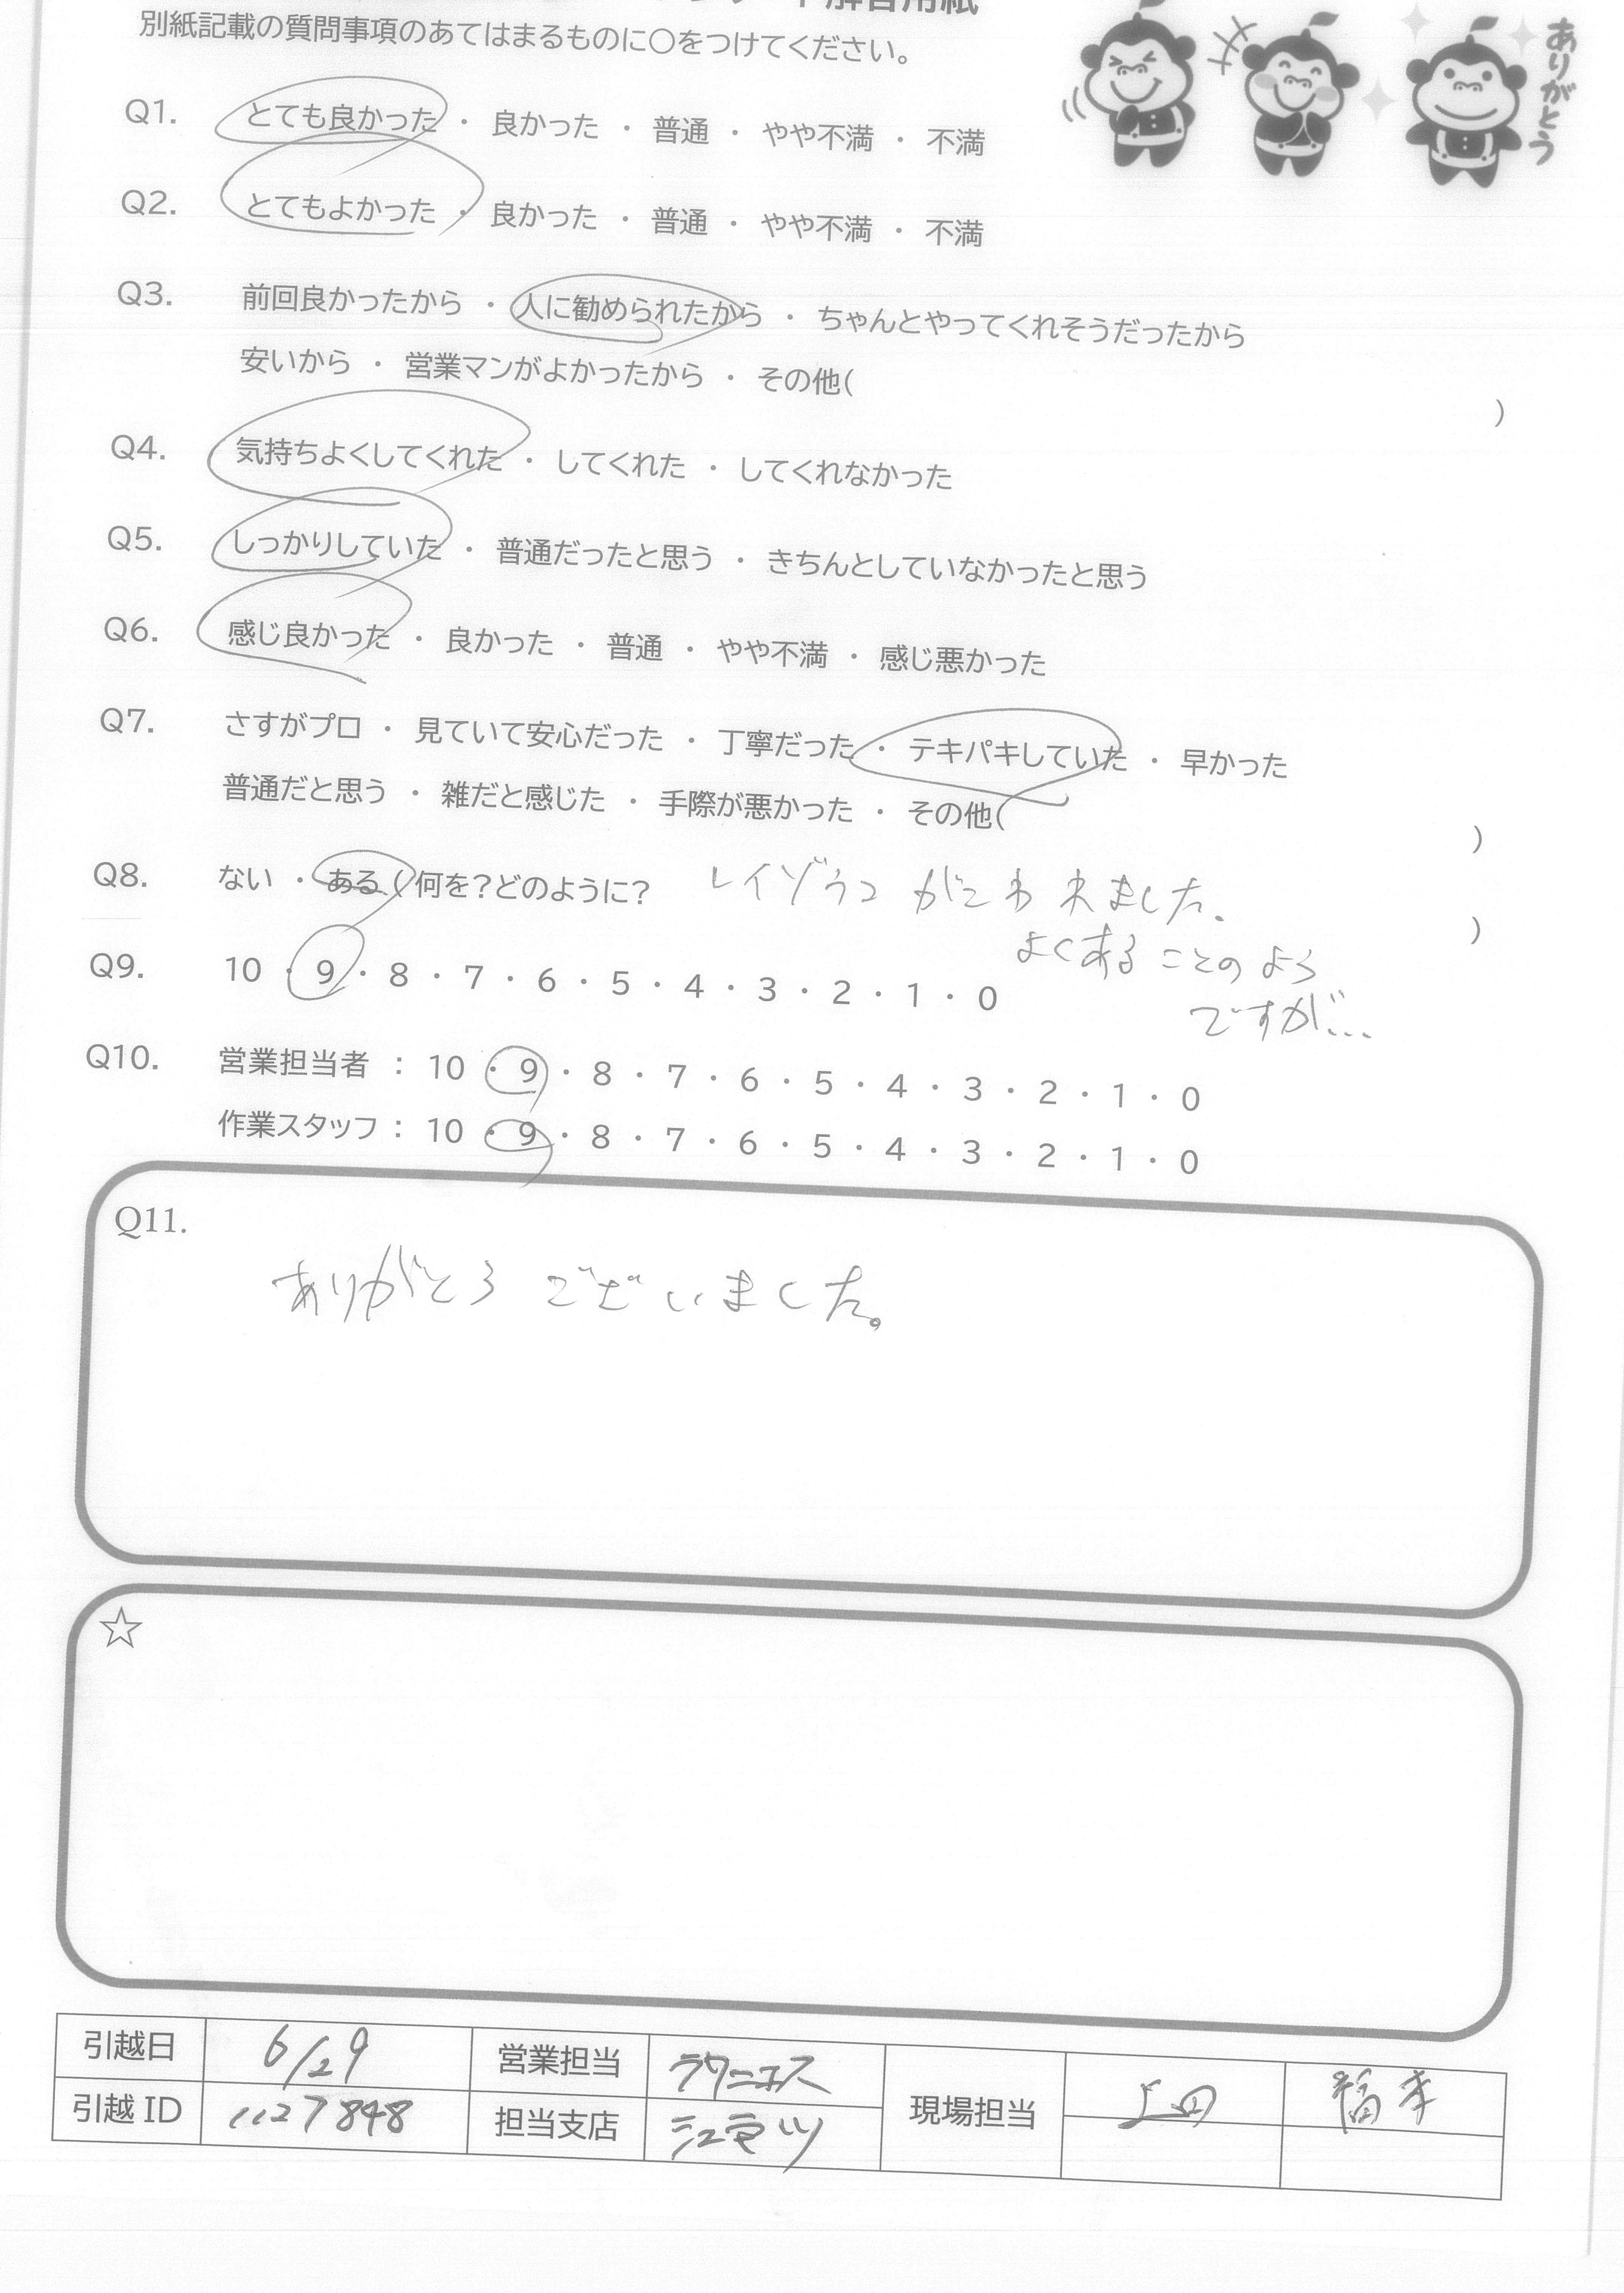 別紙記載の質問事項のあてはまるものに〇をつけてください。
ありがとう
Q1. とても良かった ・ 良かった ・ 普通 ・ やや不満 ・ 不満
Q2. とてもよかった ・ 良かった ・ 普通 ・ やや不満 ・ 不満
Q3. 前回良かったから ・ 人に勧められたから ・ ちゃんとやってくれそうだったから
安いから ・ 営業マンがよかったから ・ その他( )
Q4. 気持ちよくしてくれた ・ してくれた ・ してくれなかった
Q5. しっかりしていた ・ 普通だったと思う ・ きちんとしていなかったと思う
Q6. 感じ良かった ・ 良かった ・ 普通 ・ やや不満 ・ 感じ悪かった
Q7. さすがプロ ・ 見ていて安心だった ・ 丁寧だった ・ テキパキしていた ・ 早かった
普通だと思う ・ 雑だと感じた ・ 手際が悪かった ・ その他( )
Q8. ない ・ ある (何を?どのように? レイゾウコ がこわれました。 )
よくあることのよう
ですが...
Q9. 10 ・ 9 ・ 8 ・ 7 ・ 6 ・ 5 ・ 4 ・ 3 ・ 2 ・ 1 ・ 0
Q10. 営業担当者 : 10 ・ 9 ・ 8 ・ 7 ・ 6 ・ 5 ・ 4 ・ 3 ・ 2 ・ 1 ・ 0
作業スタッフ : 10 ・ 9 ・ 8 ・ 7 ・ 6 ・ 5 ・ 4 ・ 3 ・ 2 ・ 1 ・ 0
Q11.
ありがとうございました。
☆
引越日 6/29 営業担当 現場担当 上田 福本
引越ID 1127848 担当支店